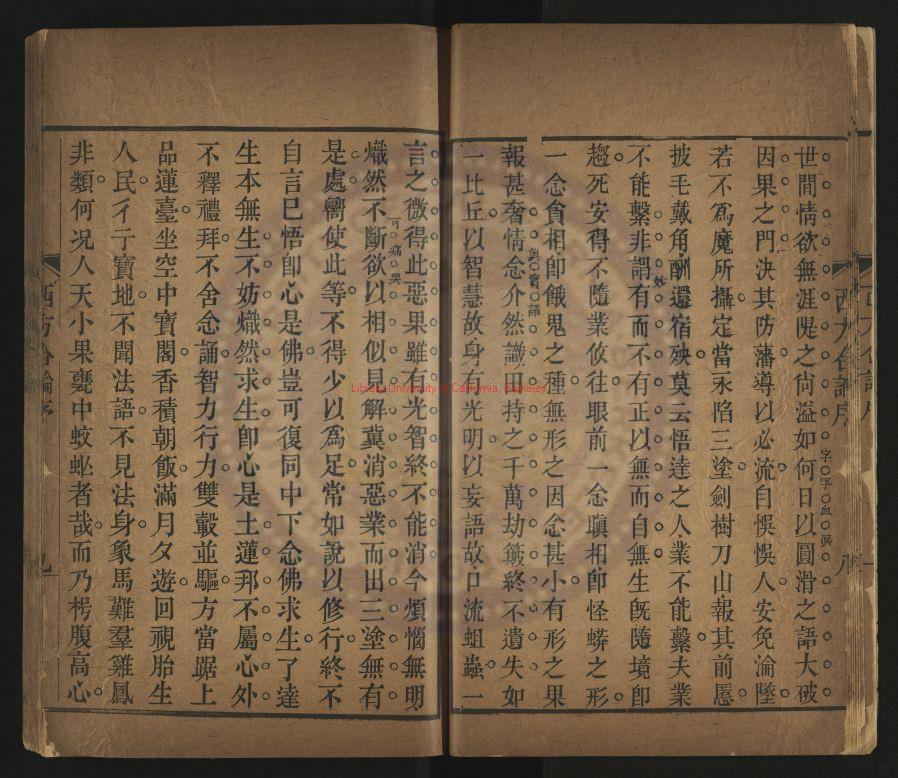 世間情欲無涯隄之尙溢如何日以圓滑之語大破
因果之門決其防藩導以必流自悞悞人安免淪墜
若不爲魔所攝定當永陷三塗劍樹刀山報其前愿
披毛戴角酬還宿殃莫云悟達之人業不能繫夫業
不能繫非謂有而不有正以無而自無生旣隨境卽
趨死安得不隨業攸往眼前一念瞋相卽怪蟒之形
一念貪相卽餓鬼之種無形之因念甚小有形之果
報甚奢情念介然識田持之千萬劫籤終不遺失如
一比丘以智慧故身有光明以妄語故口流蛆蟲一
言之微得此惡果雖有光智終不能消今煩惱無明
熾然不斷欲以相似見解冀消惡業而出三塗無有
是處嚮使此等不得少以爲足常如說以修行終不
自言已悟卽心是佛豈可復同中下念佛求生了達
生本無生不妨熾然求生卽心是土蓮邦不屬心外
不釋禮拜不舍念誦智力行力雙轂並驅方當踞上
品蓮臺坐空中寶閣香積朝飯滿月夕遊回視胎生
人民彳亍寶地不聞法語不見法身象馬難羣雞鳳
非類何況人天小果甕中蚊蚋者哉而乃枵腹高心
字字血淚
妙
眞實語
可痛哭
西方合論序
八
西方合論序
九
Library University of California, Berkeley